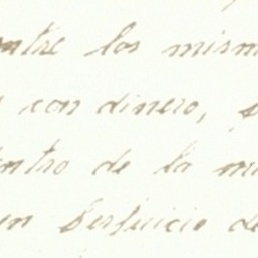 entre los mism
con dinero,
dentro de la m
en Serjuicio de